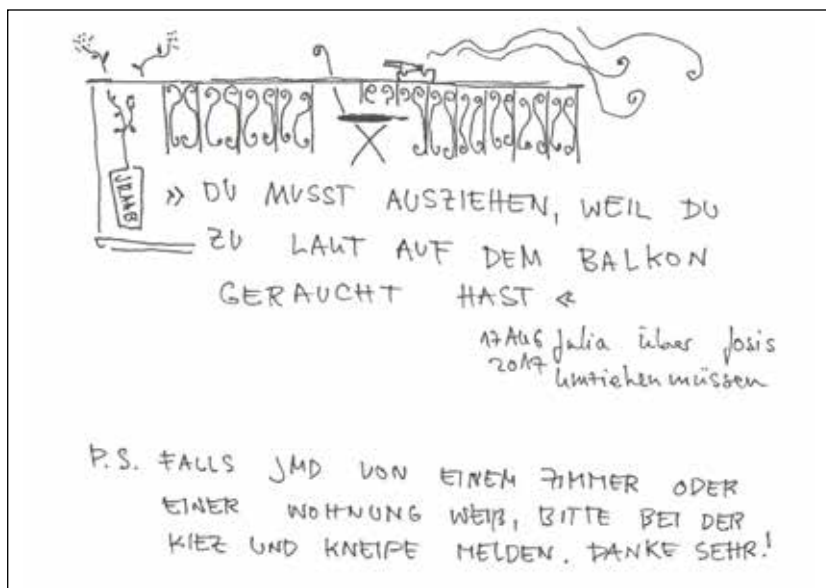 » DU MUSST AUSZIEHEN, WEIL DU
ZU LAUT AUF DEM BALKON
GERAUCHT HAST «
17 AUG Julia über Josis
2017 Umziehenmüssen
P.S. FALLS JMD VON EINEM ZIMMER ODER
EINER WOHNUNG WEIß, BITTE BEI DER
KIEZ UND KNEIPE MELDEN. DANKE SEHR!